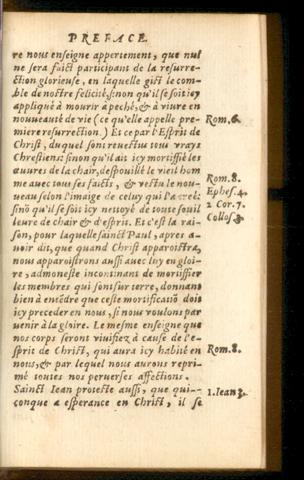 PREFACE.
re nous enseigne appertement, que nul
ne sera faict participant de la resurre-
ction glorieuse, en laquelle gist le com-
ble de nostre felicité, sinon qu'il se soit icy
appliqué à mourir à peché, & à vivre en
nouueauté de vie (ce qu'elle appelle pre- Rom.6.
miere resurrection.) Et ce par l'Esprit de
Christ, duquel sont reuestus tous vrays
Chrestiens: sinon qu'il ait icy mortifié les
œuures de la chair, despouillé le vieil hom
me auec tous ses faicts, & vestu le nou- Rom.8.
ueau selon l'image de celuy qui l'a creé: Ephes.4.
sinō qu'il se soit icy nettoyé de toute souil 2 Cor.7.
leure de chair & d'esprit. Et c'est la rai- Collos.3.
son, pour laquelle sainct Paul, apres a-
uoir dit, que quand Christ apparoistra,
nous apparoistrons aussi auec luy en gloi-
re, admoneste incontinant de mortifier
les membres qui sont sur terre, donnant
bien à entēdre que ceste mortificatiō doit
icy preceder en nous, si nous voulons par
uenir à la gloire. Le mesme enseigne que
nos corps seront viuifiez à cause de l'e-
sprit de Christ, qui aura icy habité en Rom.8.
nous, & par lequel nous aurons repri-
mé toutes nos peruerses affections.
Sainct Iean proteste aussi, que qui- 1.Iean 3.
conque a esperance en Christ, il se